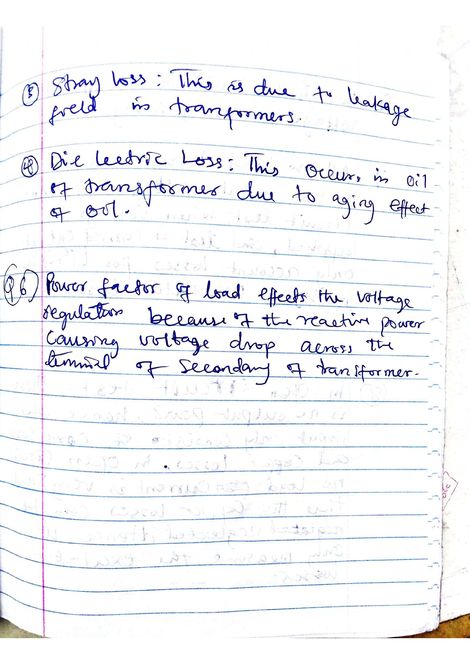 ③ Stray Loss : This is due to leakage
field in tranformers.
④ Die lectric Loss : This occurs in oil
of transformer due to aging effect
of oil.
Q6) Power factor of load effects the voltage
regulation because of the reactive power
causing voltage drop across the
terminal of secondary of transformer.